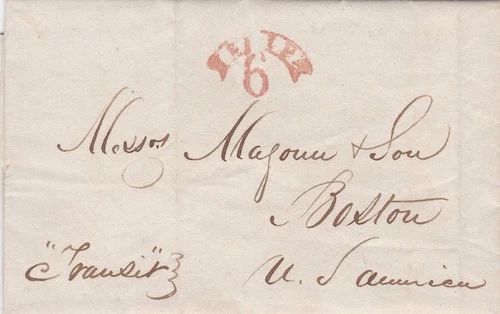 SHIP
6
Messrs Magoun & Son
Boston
"Transit" U. S america